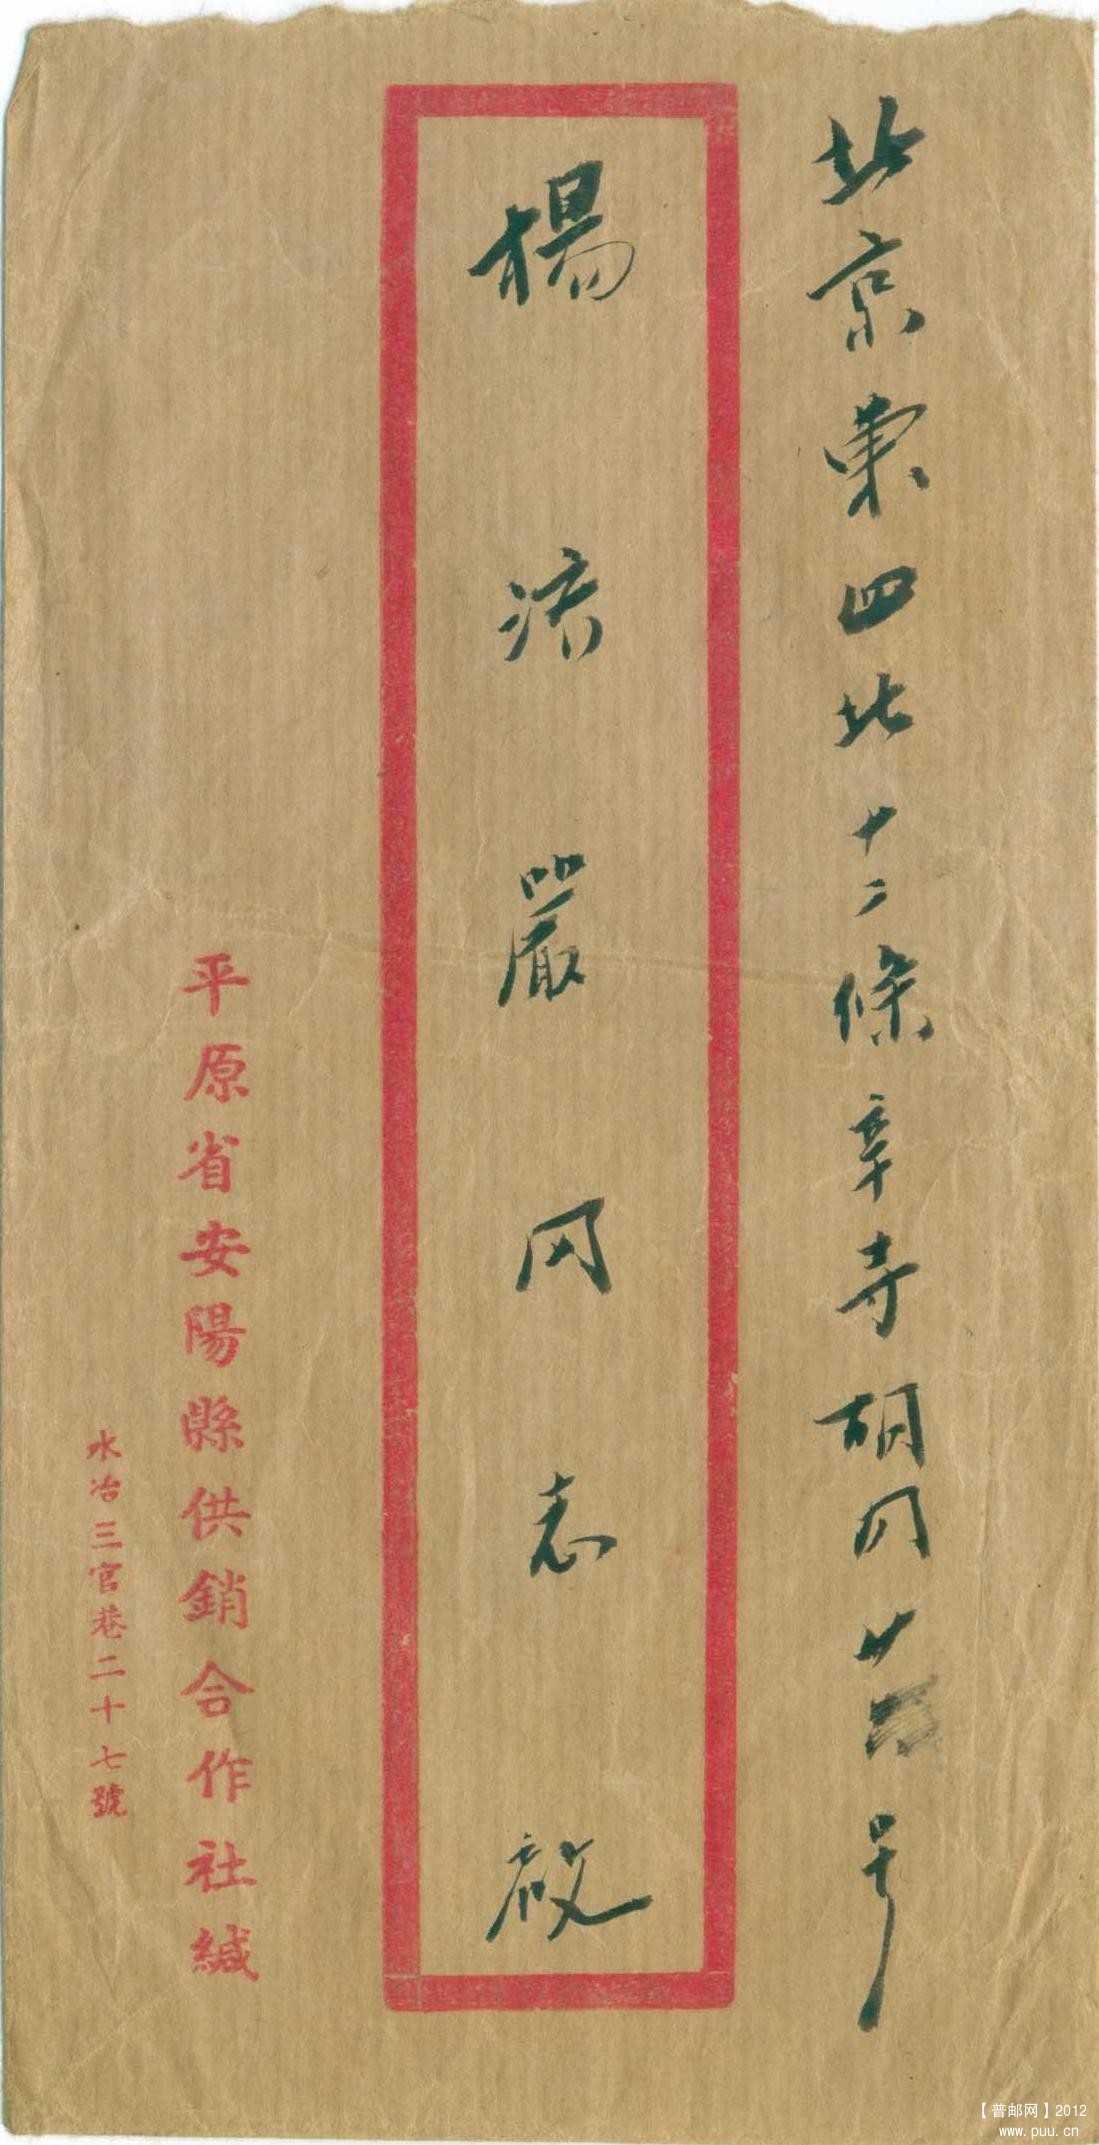 北京東四北十二條辛寺胡同廿號
楊流嚴同志啟
平原省安陽縣供銷合作社緘
水冶三官巷二十七號
【普邮网】2012
www.puu.cn